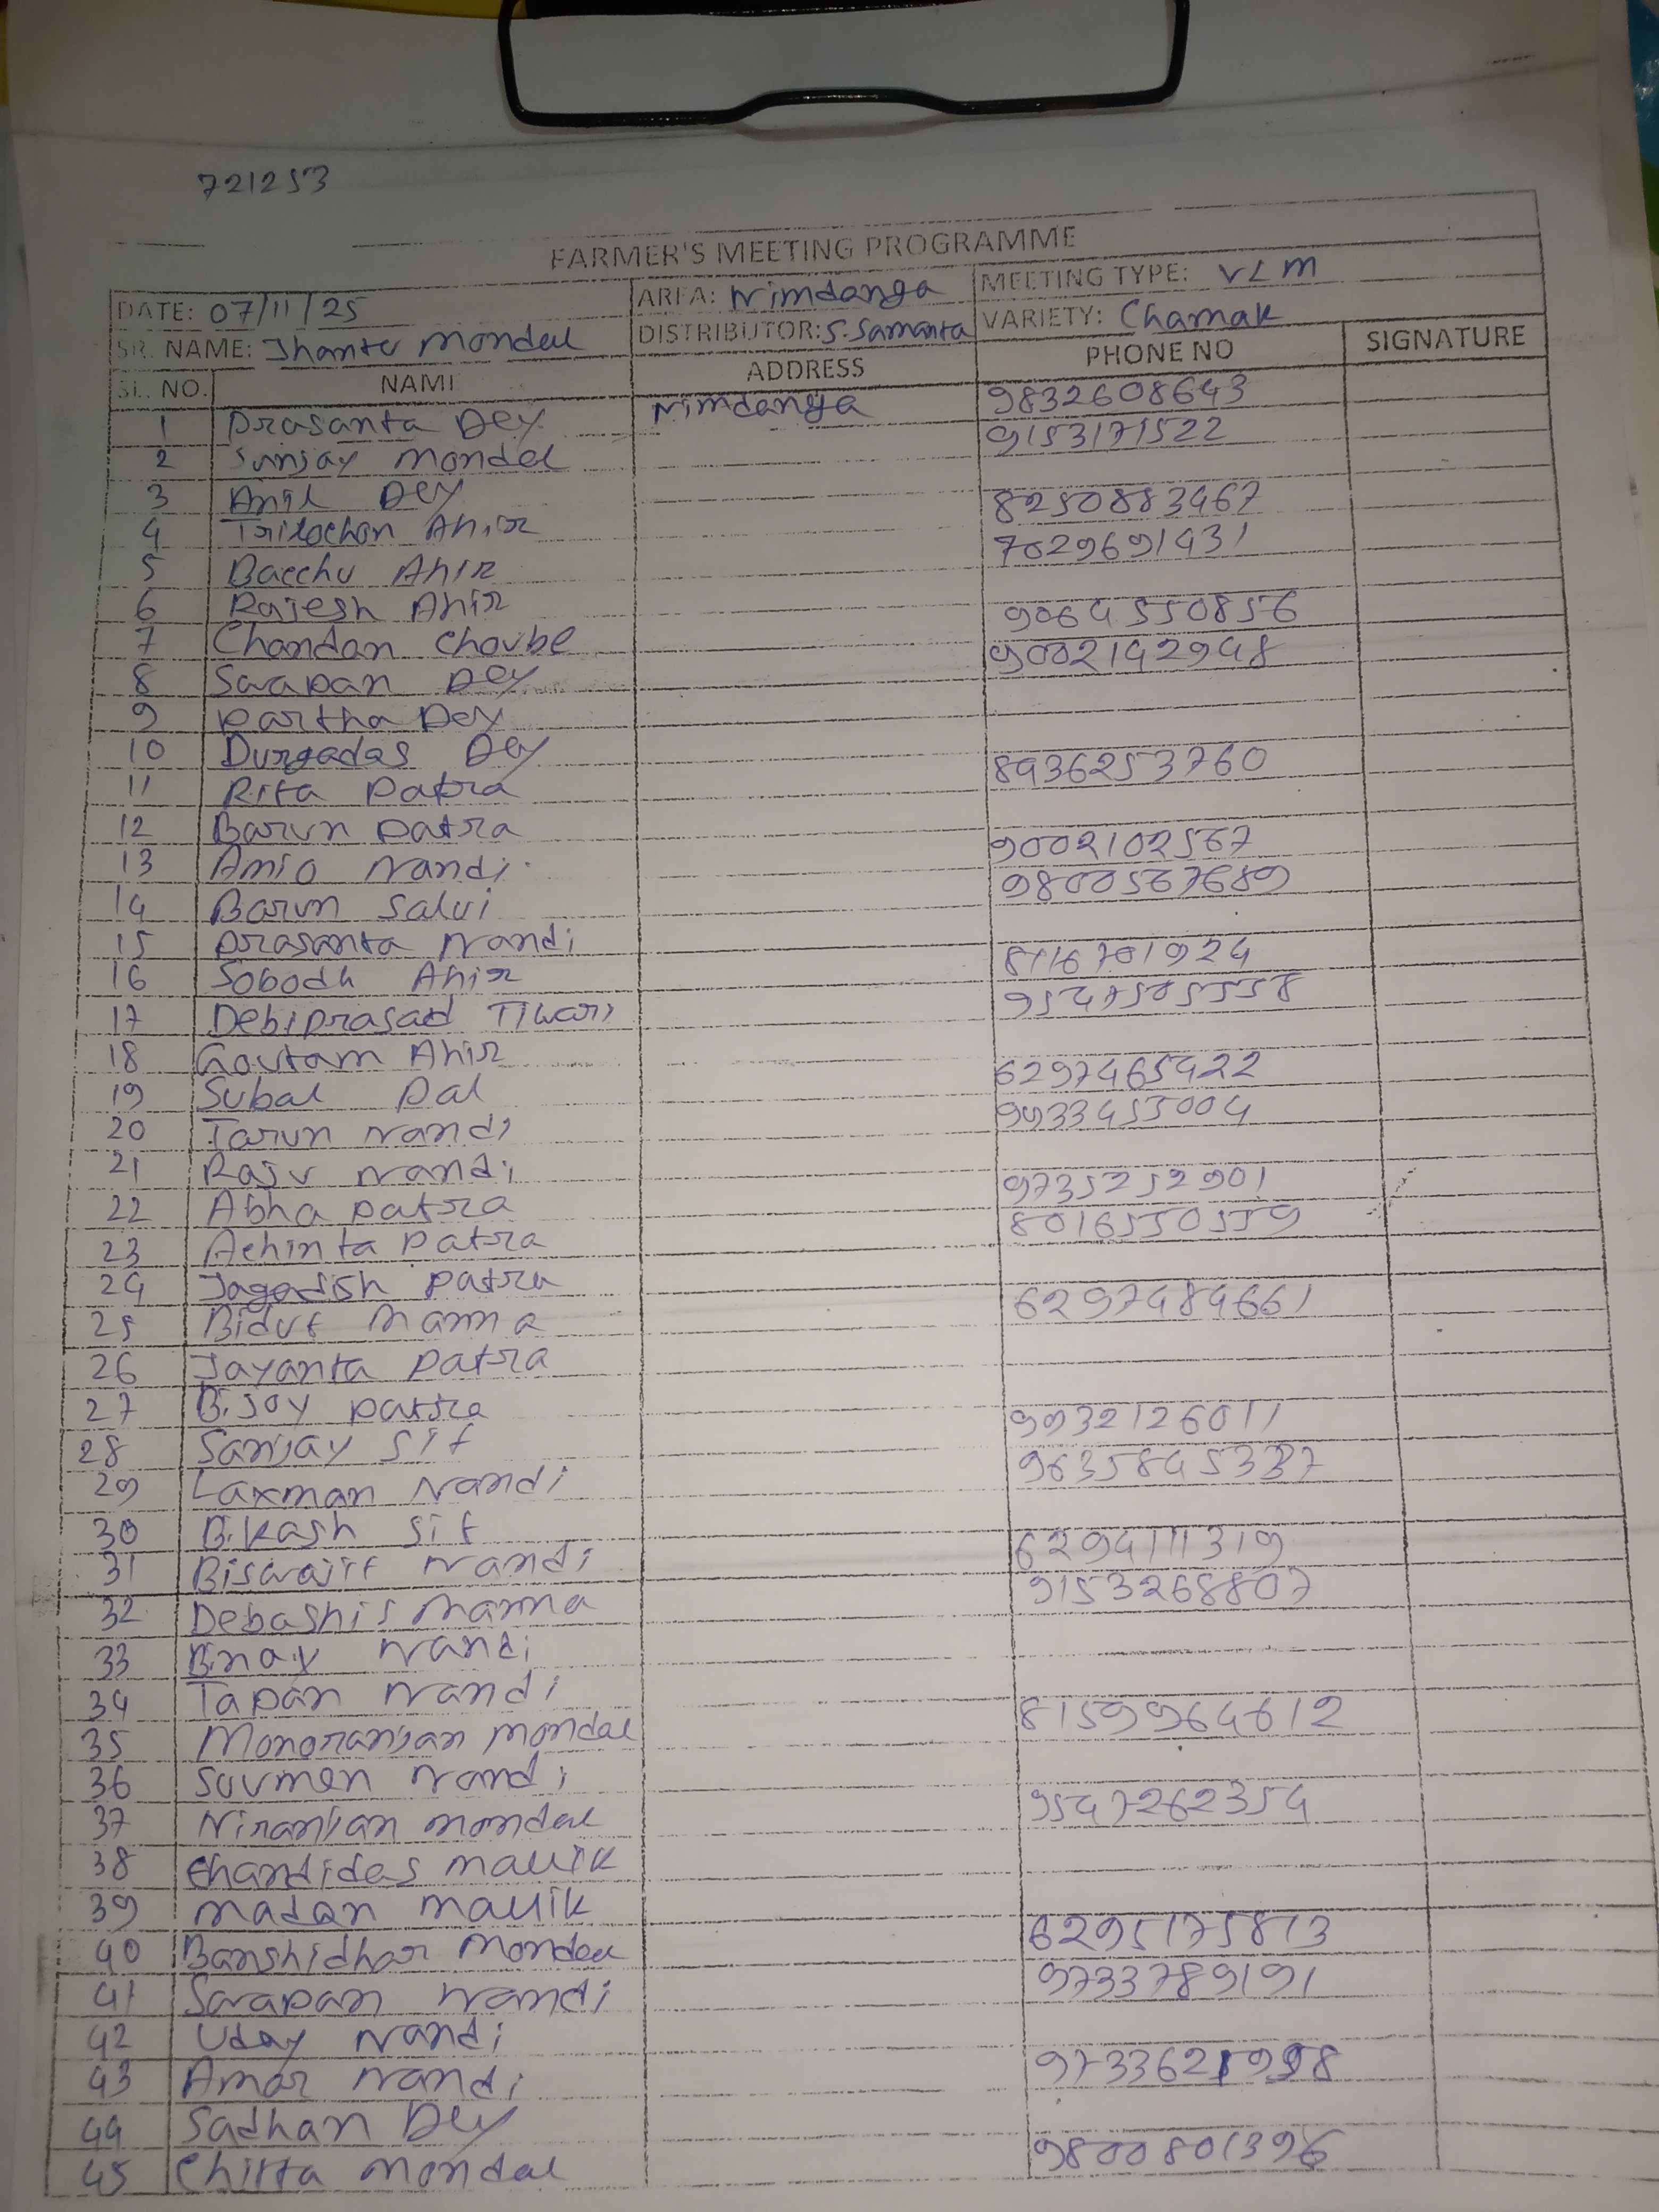 721253
FARMER'S MEETING PROGRAMME
DATE: 07/11/25 AREA: Nimdanga MEETING TYPE: VLM
SR. NAME: Jhantu Mondal DISTRIBUTOR: S. Samanta VARIETY: Chamak
SL. NO. NAME ADDRESS PHONE NO SIGNATURE
1 Prasanta Dey Nimdanga 9832608643
2 Sanjay Mondal 9153171522
3 Anil Dey
4 Trilochan Ahir 8250883467
5 Bacchu Ahir 7029691431
6 Rajesh Ahir
7 Chandan Choube 9064550856
8 Swapan Dey 9002142948
9 Partha Dey
10 Durgadas Dey
11 Rita Patra 8436253760
12 Barun Patra
13 Amio Nandi 9002102567
14 Barun Salui 9800567689
15 Prasanta Nandi
16 Sobodh Ahir 8116701924
17 Debiprasad Tiwari 9547505558
18 Goutam Ahir
19 Subal Pal 6297465422
20 Tarun Nandi 9933453004
21 Raju Nandi
22 Abha Patra 9735252901
23 Achinta Patra 8016550559
24 Jagadish Patra
25 Bidut Manna 6297484661
26 Jayanta Patra
27 Bijoy Patra
28 Sanjay Sit 9932126011
29 Laxman Nandi
30 Bikash Sit
31 Biswajit Nandi 6294111319
32 Debashis Manna 9153268807
33 Binay Nandi
34 Tapan Nandi
35 Monoranjan Mondal 8159964612
36 Soumen Nandi
37 Niranjan Mondal 9547262354
38 Chandidas Mallik
39 Madan Mallik
40 Banshidhar Mondal 6295175813
41 Swapan Nandi 9733789191
42 Uday Nandi
43 Amar Nandi
44 Sadhan Dey
45 Chitta Mondal 9800801396